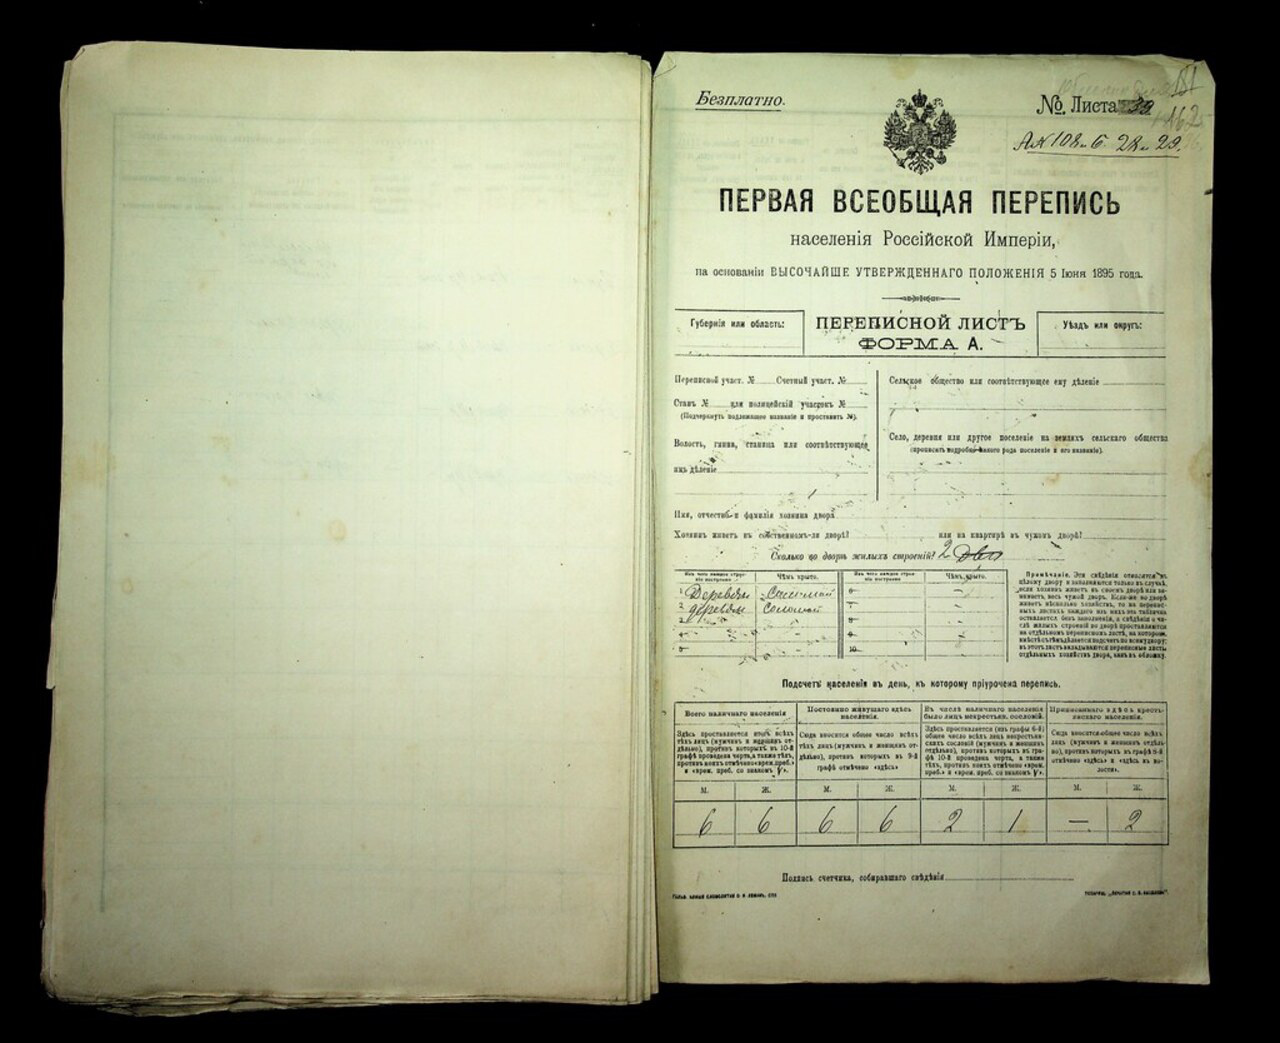 Безплатно.
№ Листа 39
162
ПЕРВАЯ ВСЕОБЩАЯ ПЕРЕПИСЬ
населенія Россійской Имперіи,
на основаніи ВЫСОЧАЙШЕ УТВЕРЖДЕННАГО ПОЛОЖЕНІЯ 5 Іюня 1895 года.
Губернія или область:
ПЕРЕПИСНОЙ ЛИСТЪ
ФОРМА А.
Уѣздъ или округъ:
Переписной участ. № Счетный участ. №
Станъ № или полицейскій участокъ №
(Подчеркнуть надлежащее названіе и проставить №).
Волость, гмина, станица или соотвѣтствующее
имъ дѣленіе
Сельское общество или соотвѣтствующее ему дѣленіе
Село, деревня или другое поселеніе на земляхъ сельскаго общества
(прописать подробно какого рода поселеніе и его названіе).
Имя, отчество и фамилія хозяина двора
Хозяинъ живетъ въ собственномъ-ли дворѣ? или на квартирѣ въ чужомъ дворѣ?
Сколько во дворѣ жилыхъ строеній? 2 Два
Изъ чего каждое строеніе построено Чѣмъ крыто. Изъ чего каждое строеніе построено Чѣмъ крыто.
1 Деревян Соломой 6
2 деревян Соломой 7
3 8
4 9
5 10
Примѣчаніе. Эти свѣдѣнія относятся къ
цѣлому двору и заполняются только въ случаѣ,
если хозяинъ живетъ въ своемъ дворѣ или занимаетъ, весь чужой дворъ. Если-же во дворѣ
живетъ нѣсколько хозяйствъ, то на переписныхъ листахъ каждаго изъ нихъ эта табличка
оставляется безъ заполненія, а свѣдѣнія о числѣ жилыхъ строеній во дворѣ проставляются
на отдѣльномъ переписномъ листѣ, на которомъ
вмѣстѣ съ тѣмъ дѣлается подсчетъ по всему двору;
въ этотъ листъ вкладываются переписные листы
отдѣльныхъ хозяйствъ двора, какъ въ обложку.
Подсчетъ населенія въ день, къ которому пріурочена перепись.
Всего наличнаго населенія
Здѣсь проставляется итогъ всѣхъ
тѣхъ лицъ (мужчинъ и женщинъ отдѣльно), противъ которыхъ въ 10-й
графѣ проведена черта, а также тѣхъ,
противъ коихъ отмѣчено «врем. преб.»
и «врем. преб. со знакомъ V».
Постоянно живущаго здѣсь
населенія.
Сюда вносится общее число всѣхъ
тѣхъ лицъ (мужчинъ и женщинъ отдѣльно), противъ которыхъ въ 9-й
графѣ отмѣчено «здѣсь»
Въ числѣ наличнаго населенія
было лицъ некрестьян. сословій.
Здѣсь проставляется (изъ графы 6-й)
общее число всѣхъ лицъ некрестьянскихъ сословій (мужчинъ и женщинъ
отдѣльно), противъ которыхъ въ графѣ 10-й проведена черта, а также
тѣхъ, противъ коихъ отмѣчено «врем.
преб.» и «врем. преб. со знакомъ V».
Приписаннаго здѣсь крестьянскаго населенія.
Сюда вносится общее число всѣхъ
лицъ (мужчинъ и женщинъ отдѣльно), противъ которыхъ въ графѣ 8-й
отмѣчено «здѣсь» и «здѣсь въ волости».
М. Ж. М. Ж. М. Ж. М. Ж.
6 6 6 6 2 1 — 2
Подпись счетчика, собиравшаго свѣдѣнія